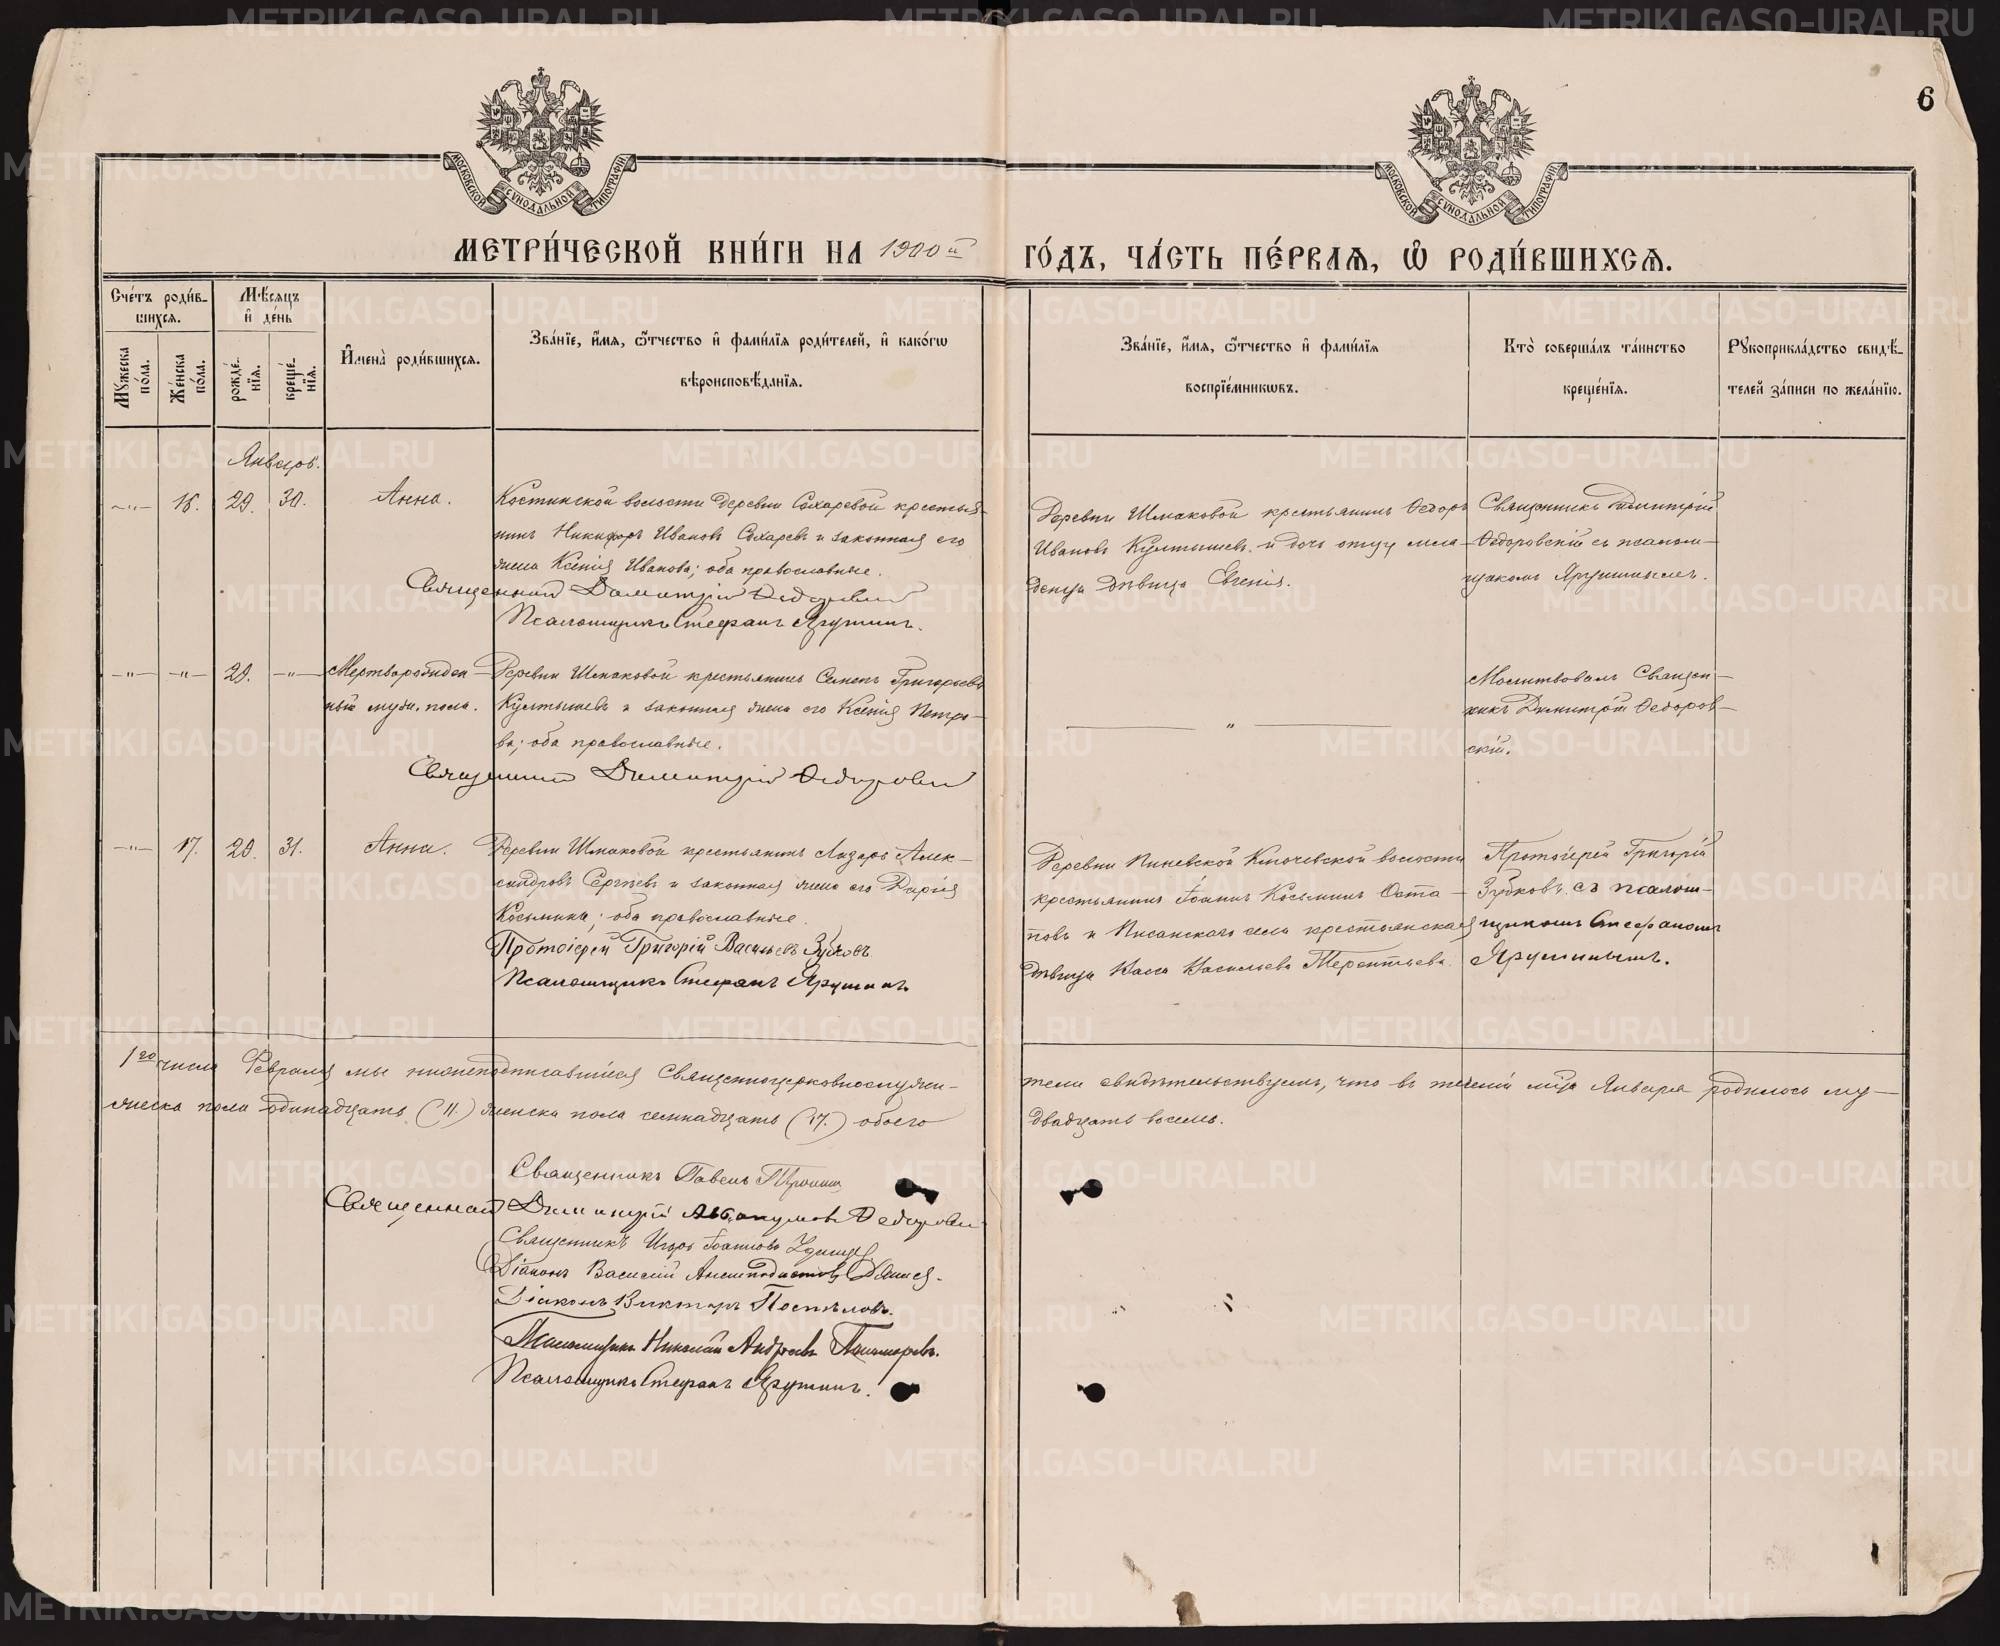 6
МОСКОВСКОЙ СѴНОДАЛЬНОЙ ТИПОГРАФІИ
МОСКОВСКОЙ СѴНОДАЛЬНОЙ ТИПОГРАФІИ
МЕТРИ́ЧЕСКОЙ КНИ́ГИ НА 1900й ГО́ДЪ, ЧА́СТЬ ПЕ́РВАЯ, Ѽ РОДИ́ВШИХСЯ.
Сче́тъ роди́вшихся.
Мужеска по́ла.
Же́нска по́ла.
Мѣ́сяцъ и҆ де́нь
рожде́нїя.
креще́нїя.
И҆мена̀ роди́вшихся.
Зва́нїе, и҆́мя, ѻ҆́тчество и҆ фами́лїя роди́телей, и҆ како́гѡ
вѣроисповѣ́данїя.
Зва́нїе, и҆́мя, ѻ҆́тчество и҆ фами́лїя
воспрїе́мникѡвъ.
Кто̀ соверша́лъ та́инство
креще́нїя.
Рукоприкла́дство свидѣ́-
телей за́писи по жела́нїю.
Январь.
—"— 16. 29. 30. Анна.
Костинской волости деревни Сохаревой крестья-
нинъ Никифоръ Ивановъ Сохаревъ и законная его
жена Ксенія Иванова; оба православные.
Священникъ Димитрій Ѳедоровскій
Псаломщикъ Стефанъ Ярушинъ.
Деревни Шмаковой крестьянинъ Ѳедоръ
Ивановъ Култышевъ и дочь отца мла-
денца дѣвица Евгенія.
Священникъ Димитрій
Ѳедоровскій съ псалом-
щикомъ Ярушинымъ.
—"— —"— 29. —"— Мертворожден-
ный муж. пола.
Деревни Шмаковой крестьянинъ Семенъ Григорьевъ
Култышевъ и законная жена его Ксенія Петро-
ва; оба православные.
Священникъ Димитрій Ѳедоровскій
"
Молитвовалъ Священ-
никъ Димитрій Ѳедоров-
скій.
—"— 17. 29. 31. Анна.
Деревни Шмаковой крестьянинъ Лазарь Алек-
сандровъ Сергѣевъ и законная жена его Дарія
Косьмина; оба православные.
Протоіерей Григорій Васильевъ Зубковъ.
Псаломщикъ Стефанъ Ярушинъ.
Деревни Ключевской волости
крестьянинъ Іоаннъ Косьминъ Оста-
повъ и Писанскаго села крестьянская
дѣвица Васса Васильева Терентьева.
Протоіерей Григорій
Зубковъ съ псалом-
щикомъ Стефаномъ
Ярушинымъ.
1го числа Февраля мы нижеподписавшіеся Священноцерковнослужи-
тели свидѣтельствуемъ, что въ теченіи мѣс. Января родилось му-
жеска пола одинадцать (11.) женска пола семнадцать (17.) обоего
двадцать восемь.
Священникъ Павелъ
Священникъ Димитрій Аввакумовъ Ѳедоровскій
Священникъ Іоанновъ
Діаконъ Василій
Діаконъ Викторъ Поспѣловъ.
Псаломщикъ Николай Андреевъ Пономаревъ.
Псаломщикъ Стефанъ Ярушинъ.
METRIKI.GASO-URAL.RU